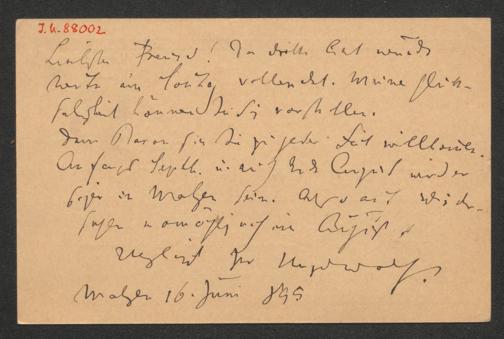 I.N. 88002
Liebster Freund! Der dritte Act wurde
heute am Sonntag vollendet. Meine Glück-
seligkeit können Sie sich vorstellen.
Dem Baron sind Sie zu jeder Zeit willkommen.
Anfangs Septb. u. auch Ende August wird er
sogar in Matzen sein. Also auf Wieder-
sehen womöglich noch im August.
Herzlichst Ihr Hugo Wolf.
Matzen 16. Juni 895